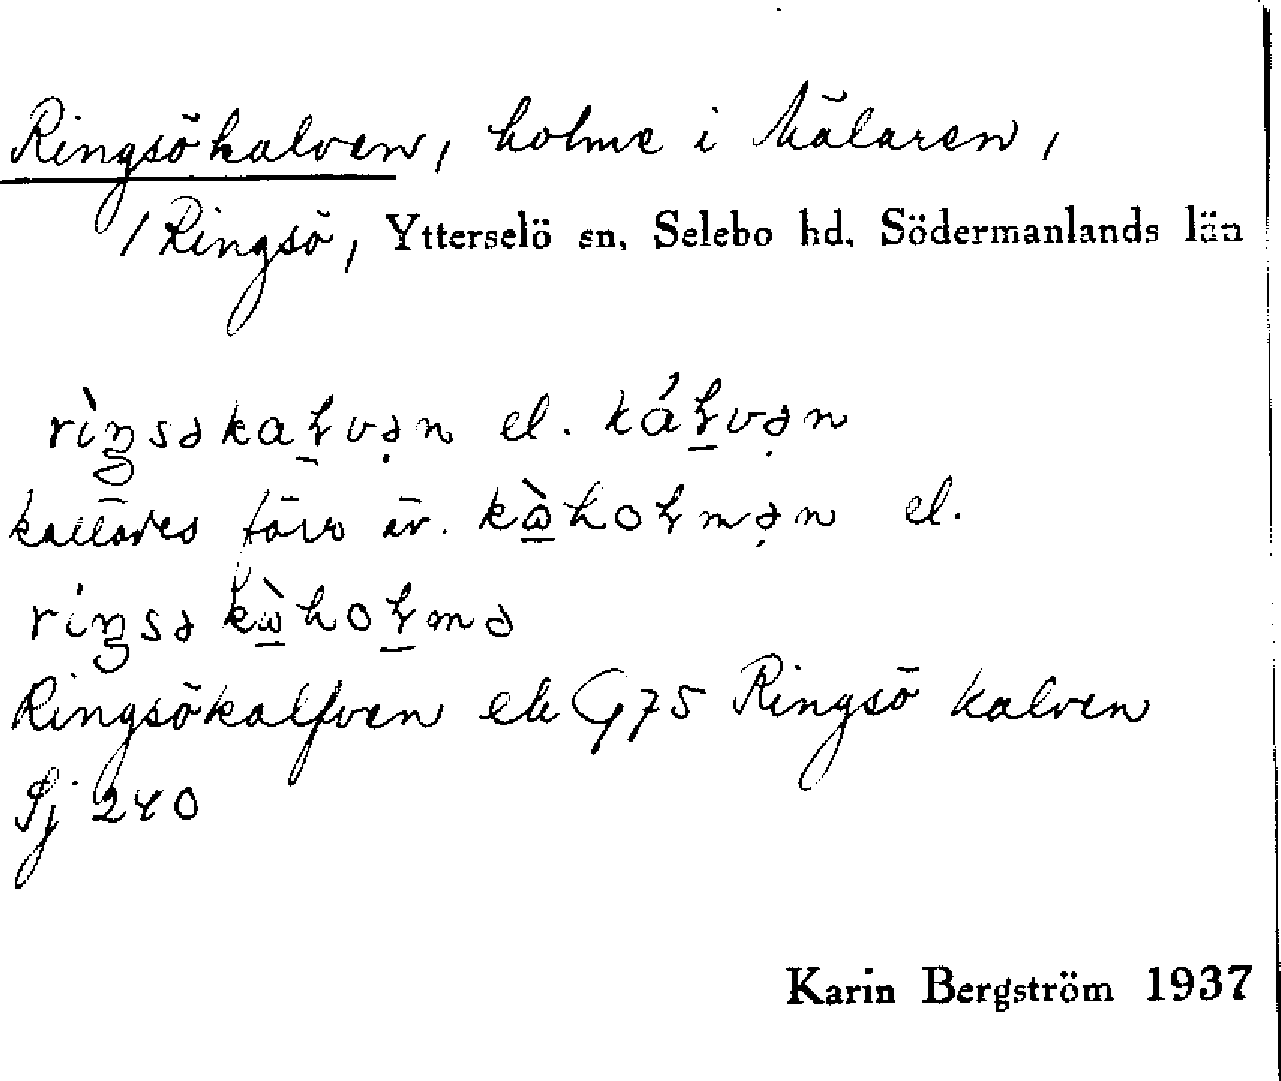 Ringsökalven, holme i Mälaren,
/ Ringsö, Ytterselö sn. Selebo hd. Södermanlands län
rìŋsəkaḻvə̣n el. káḻvə̣n
kallades förr äv. kὼhoɫmə̣n el.
ríŋsə kὼhoɫmə
Ringsökalfven ek G75 Ringsö kalven
Sj 240
Karin Bergström 1937